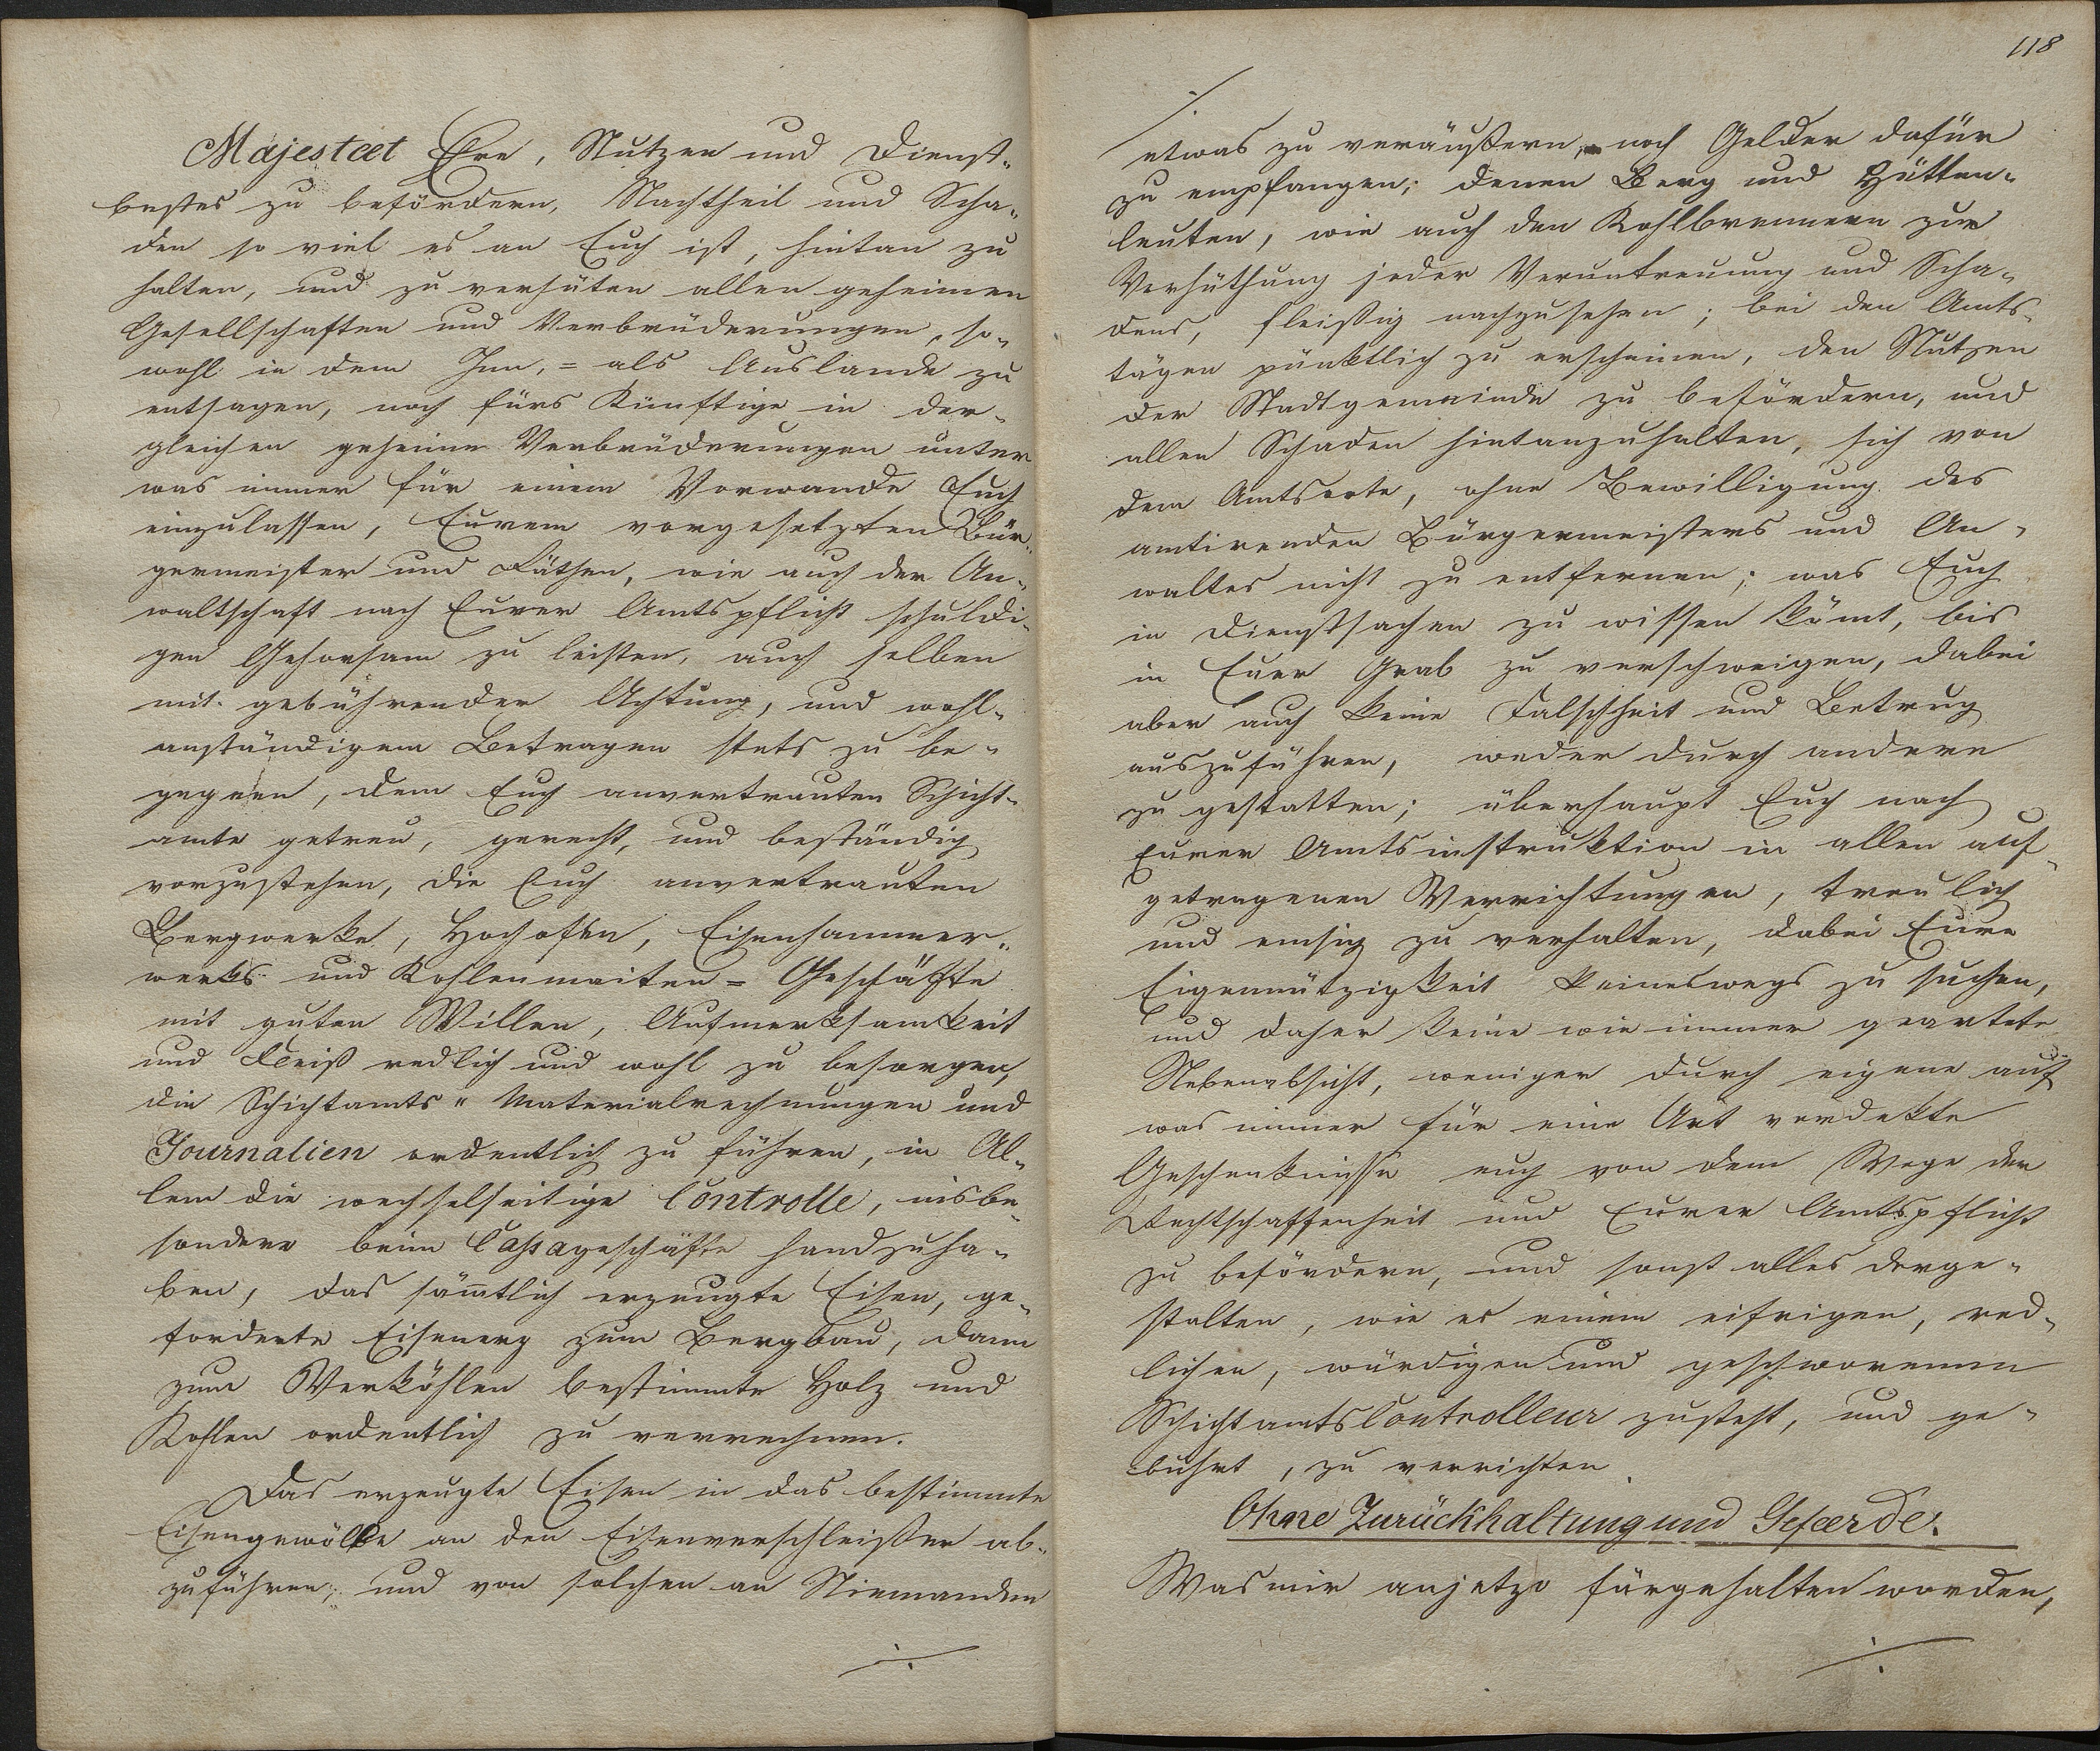 Majestæt Ehre, Nutzen und Dienst-
bestes zu befördern, Nachtheil und Scha-
den so viel es an Euch ist, hintan zu
halten, und zu verhüten allen geheimen
Gesellschaften und Verbrüderungen, so-
wohl in dem Inn,= als Auslande zu
entsagen, noch fürs Künftige in der-
gleichen geheime Verbrüderungen unter
was immer für einem Vorwande Euch
einzulassen, Eurem vorgesetzten Bür-
germeister und Räthen, wie auch der An-
waltschaft nach Eurer Amtspflicht schuldi-
gen Gehorsam zu leisten, auch selben
mit gebührender Achtung, und wohl-
anständigem Betragen stets zu be-
gegnen, dem Euch anvertrauten Schicht-
amte getreu, gerecht, und beständig
vorzustehen, die Euch anvertrauten
Bergwerke, Hochofen, Eisenhammer-
werks und Kohlenmaiten = Geschäfte
mit guten Willen, Aufmerksamkeit
und Fleiß redlich und wohl zu besorgen,
die Schichtamts " Materialrechnungen und
Journalien ordentlich zu führen, in Al-
lem die wechselseitige Controlle, insbe-
sondere beim Cassageschäfte handzuha-
ben, das sämtlich erzeugte Eisen, ge-
forderte Eisenerz zum Bergbau, dann
zum Verköhlen bestimmte Holz und
Kohlen ordentlich zu verrechnen.
Das erzeugte Eisen in das bestimmte
Eisengewölbe an den Eisenverschleißer ab-
zuführen; und von solchen an Niemanden
./.
118
./.
etwas zu veräußern, noch Gelder dafür
zu empfangen; denen Berg und Hütten-
leuten, wie auch den Kohlbrennern zur
Verhüthung jeder Veruntreuung und Scha-
dens, fleißig nachzusehen; bei den Amts-
tägen pünktlich zu erscheinen, den Nutzen
der Stadtgemeinde zu befördern, und
allen Schaden hintanzuhalten, sich von
dem Amtsorte, ohne Bewilligung des
amtirenden Bürgermeisters und An-
waltes nicht zu entfernen; was Euch
in Dienstsachen zu wissen kömt, bis
in Euer Grab zu verschweigen, dabei
aber auch keine Falschheit und Betrug
auszuführen, weder durch andere
zu gestatten; überhaupt Euch nach
Eurer Amtsinstruktion in allen auf-
getragenen Verrichtungen, treulich
und emsig zu verhalten, dabei Eure
Eigennützigkeit keineswegs zu suchen,
und daher keine wie immer geartete
Nebenabsicht, weniger durch eigene auf
was immer für eine Art verdekte
Geschenknisse euch von dem Wege der
Rechtschaffenheit und Eurer Amtspflicht
zu befördern, und sonst alles derge-
stalten, wie es einem eifrigen, red-
lichen, würdigen und geschworenen
SchichtamtsControlleur zusteht, und ge-
bührt, zu verrichten.
Ohne Zurückhaltung und Gefærde.
Was mir anjetzo fürgehalten worden,
./.